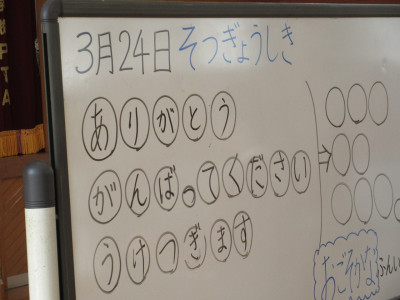 3月24日 そつぎょうしき
ありがとう
がんばってください
うけつぎます
⇒
おごそかな
PTA